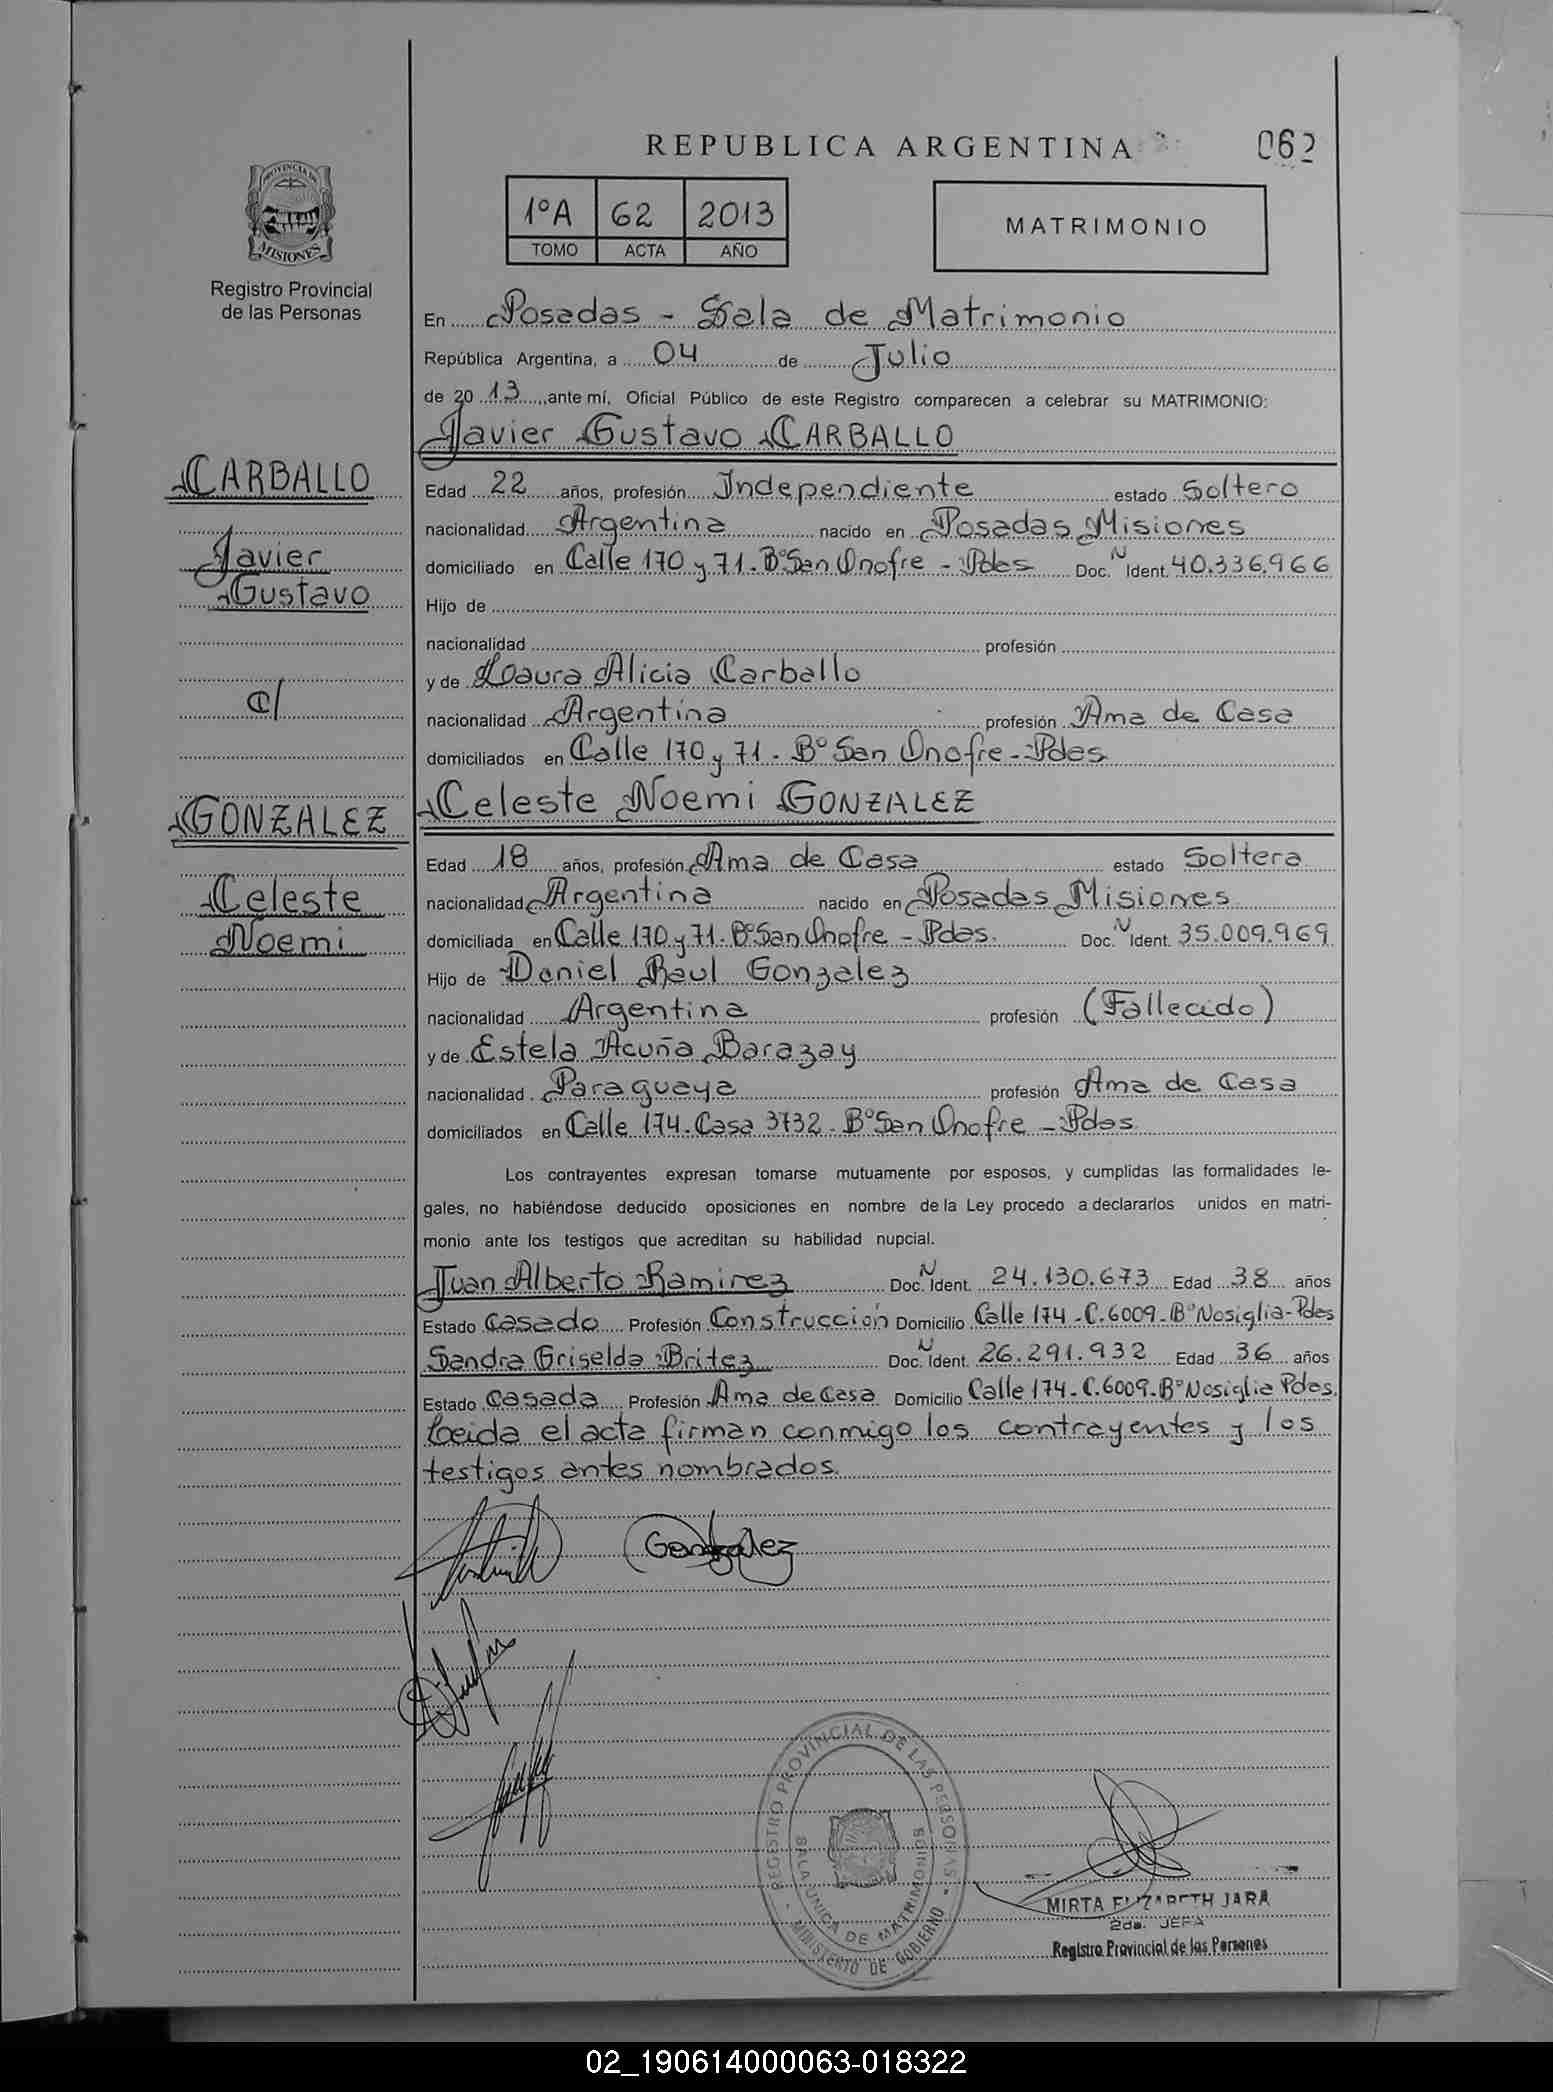 REPUBLICA ARGENTINA
062
PROVINCIA DE MISIONES
Registro Provincial
de las Personas
1ºA 62 2013
TOMO ACTA AÑO
MATRIMONIO
En Posadas - Sala de Matrimonio
República Argentina, a 04 de Julio
de 20 13, ante mí, Oficial Público de este Registro comparecen a celebrar su MATRIMONIO:
Javier Gustavo CARBALLO
CARBALLO
Javier
Gustavo
c/
GONZALEZ
Celeste
Noemi
Edad 22 años, profesión Independiente estado Soltero
nacionalidad Argentina nacido en Posadas Misiones
domiciliado en Calle 170 y 71. Bº San Onofre - Pdas Doc. N Ident. 40.336.966
Hijo de
nacionalidad profesión
y de Laura Alicia Carballo
nacionalidad Argentina profesión Ama de Casa
domiciliados en Calle 170 y 71. Bº San Onofre - Pdas
Celeste Noemi GONZALEZ
Edad 18 años, profesión Ama de Casa estado Soltera
nacionalidad Argentina nacido en Posadas Misiones
domiciliada en Calle 170 y 71. Bº San Onofre - Pdas. Doc. N Ident. 35.009.969
Hijo de Daniel Raul Gonzalez
nacionalidad Argentina profesión (Fallecido)
y de Estela Acuña Barazay
nacionalidad Paraguaya profesión Ama de Casa
domiciliados en Calle 174. Casa 3732. Bº San Onofre - Pdas
Los contrayentes expresan tomarse mutuamente por esposos, y cumplidas las formalidades le-
gales, no habiéndose deducido oposiciones en nombre de la Ley procedo a declararlos unidos en matri-
monio ante los testigos que acreditan su habilidad nupcial.
Juan Alberto Ramirez Doc. N Ident. 24.130.673 Edad 38 años
Estado Casado Profesión Construcción Domicilio Calle 174 - C.6009 - Bº Nosiglia - Pdas
Sandra Griselda Britez Doc. N Ident. 26.291.932 Edad 36 años
Estado Casada Profesión Ama de Casa Domicilio Calle 174 - C.6009 - Bº Nosiglia Pdas.
Leida el acta firman conmigo los contrayentes y los
testigos antes nombrados.
Gonzalez
REGISTRO PROVINCIAL DE LAS PERSONAS
SALA UNICA DE MATRIMONIOS
MINISTERIO DE GOBIERNO
MIRTA ELIZABETH JARA
2da. JEFA
Registro Provincial de las Personas
02_190614000063-018322